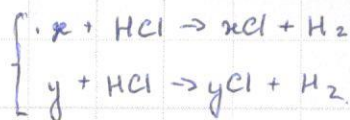 { . x + HCl → xCl + H₂
y + HCl → yCl + H₂.